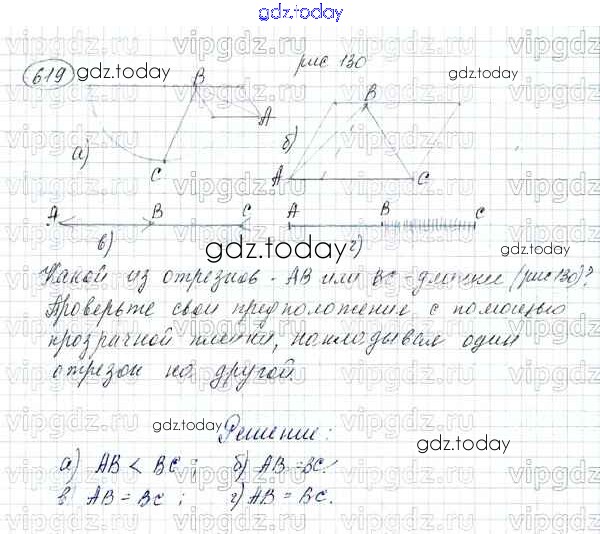 gdz.today
619
gdz.today
рис 130
B
A
а)
C
B
б)
A
C
A B C
в)
A B C
г)
gdz.today
Какой из отрезков - AB или BC - длиннее (рис 130)?
Проверьте свои предположения с помощью
прозрачной пленки, накладывая один
отрезок на другой.
gdz.today
Решение:
gdz.today
а) AB < BC; б) AB = BC;
в) AB = BC; г) AB = BC.
gdz.today
vipgdz.ru